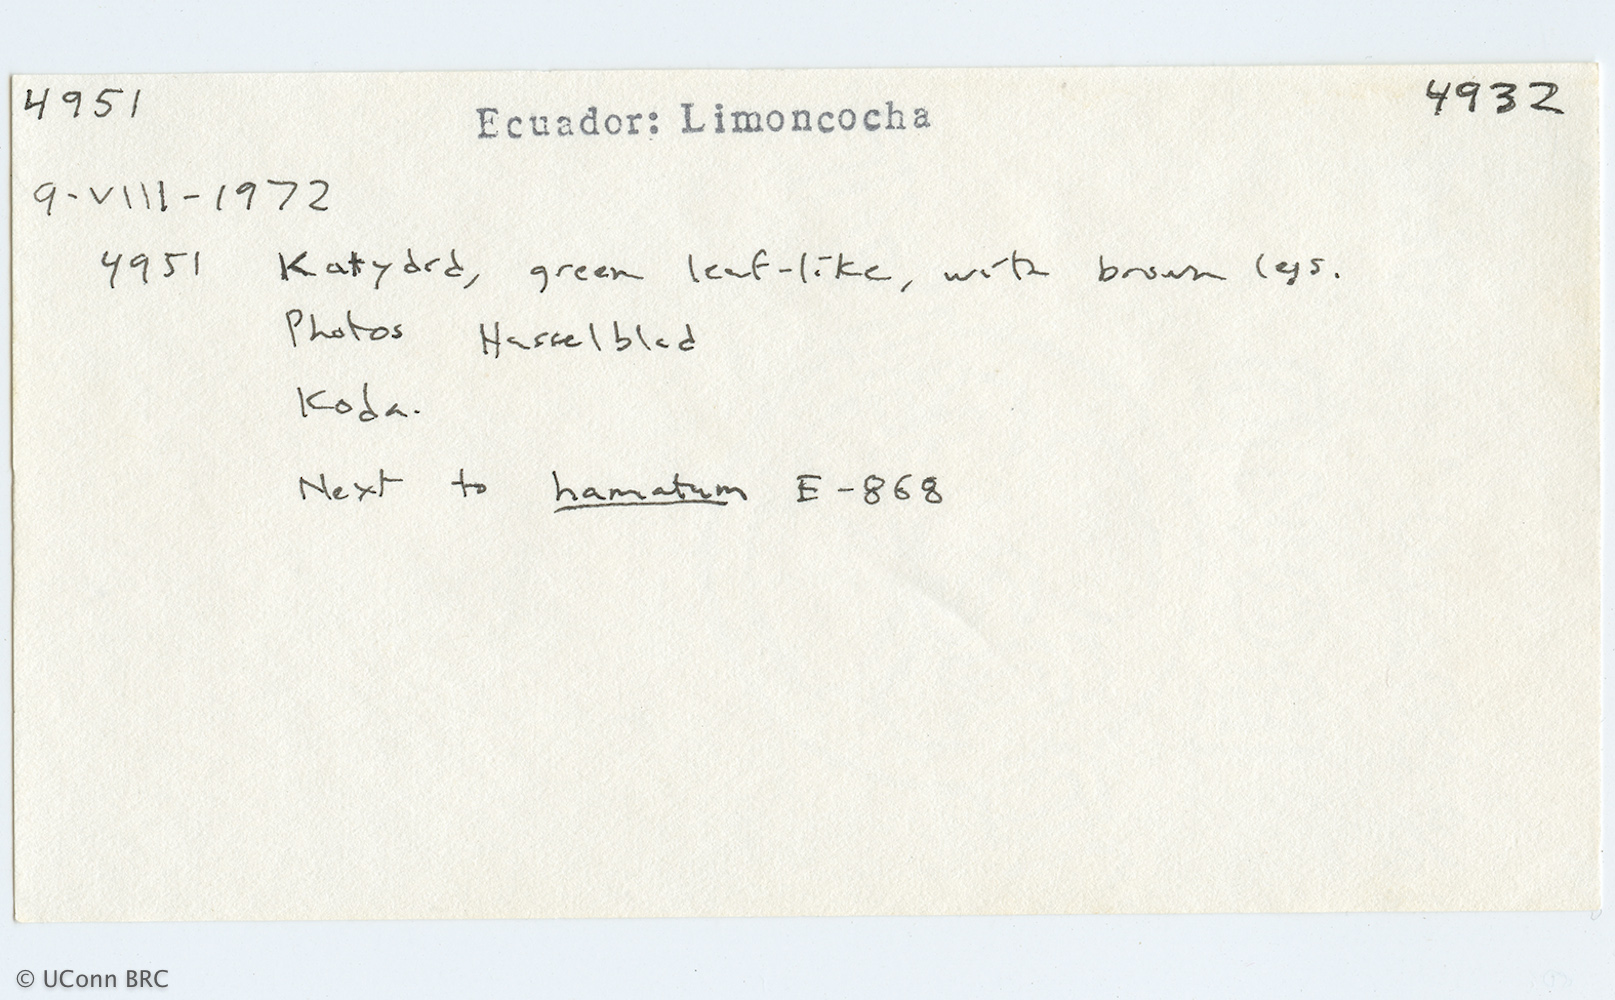 4951 Ecuador: Limoncocha 4932
9-VIII-1972
4951 Katydid, green leaf-like, with brown legs.
Photos Hasselblad
Koda.
Next to hamatum E-868
© UConn BRC